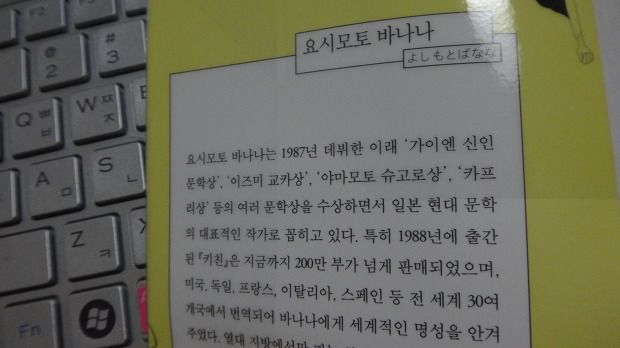 F1
F2
F3
@
2
#
3
Q ㅃ
ㅂ
W ㅉ
ㅈ
A ㅁ
S ㄴ
Z ㅋ
Fn
요시모토 바나나
よしもとばなな
요시모토 바나나는 1987년 데뷔한 이래 ‘가이엔 신인
문학상’, ‘이즈미 교카상’, ‘야마모토 슈고로상’, ‘카프
리상’ 등의 여러 문학상을 수상하면서 일본 현대 문학
의 대표적인 작가로 꼽히고 있다. 특히 1988년에 출간
된 『키친』은 지금까지 200만 부가 넘게 판매되었으며,
미국, 독일, 프랑스, 이탈리아, 스페인 등 전 세계 30여
개국에서 번역되어 바나나에게 세계적인 명성을 안겨
주었다. 열대 지방에서만